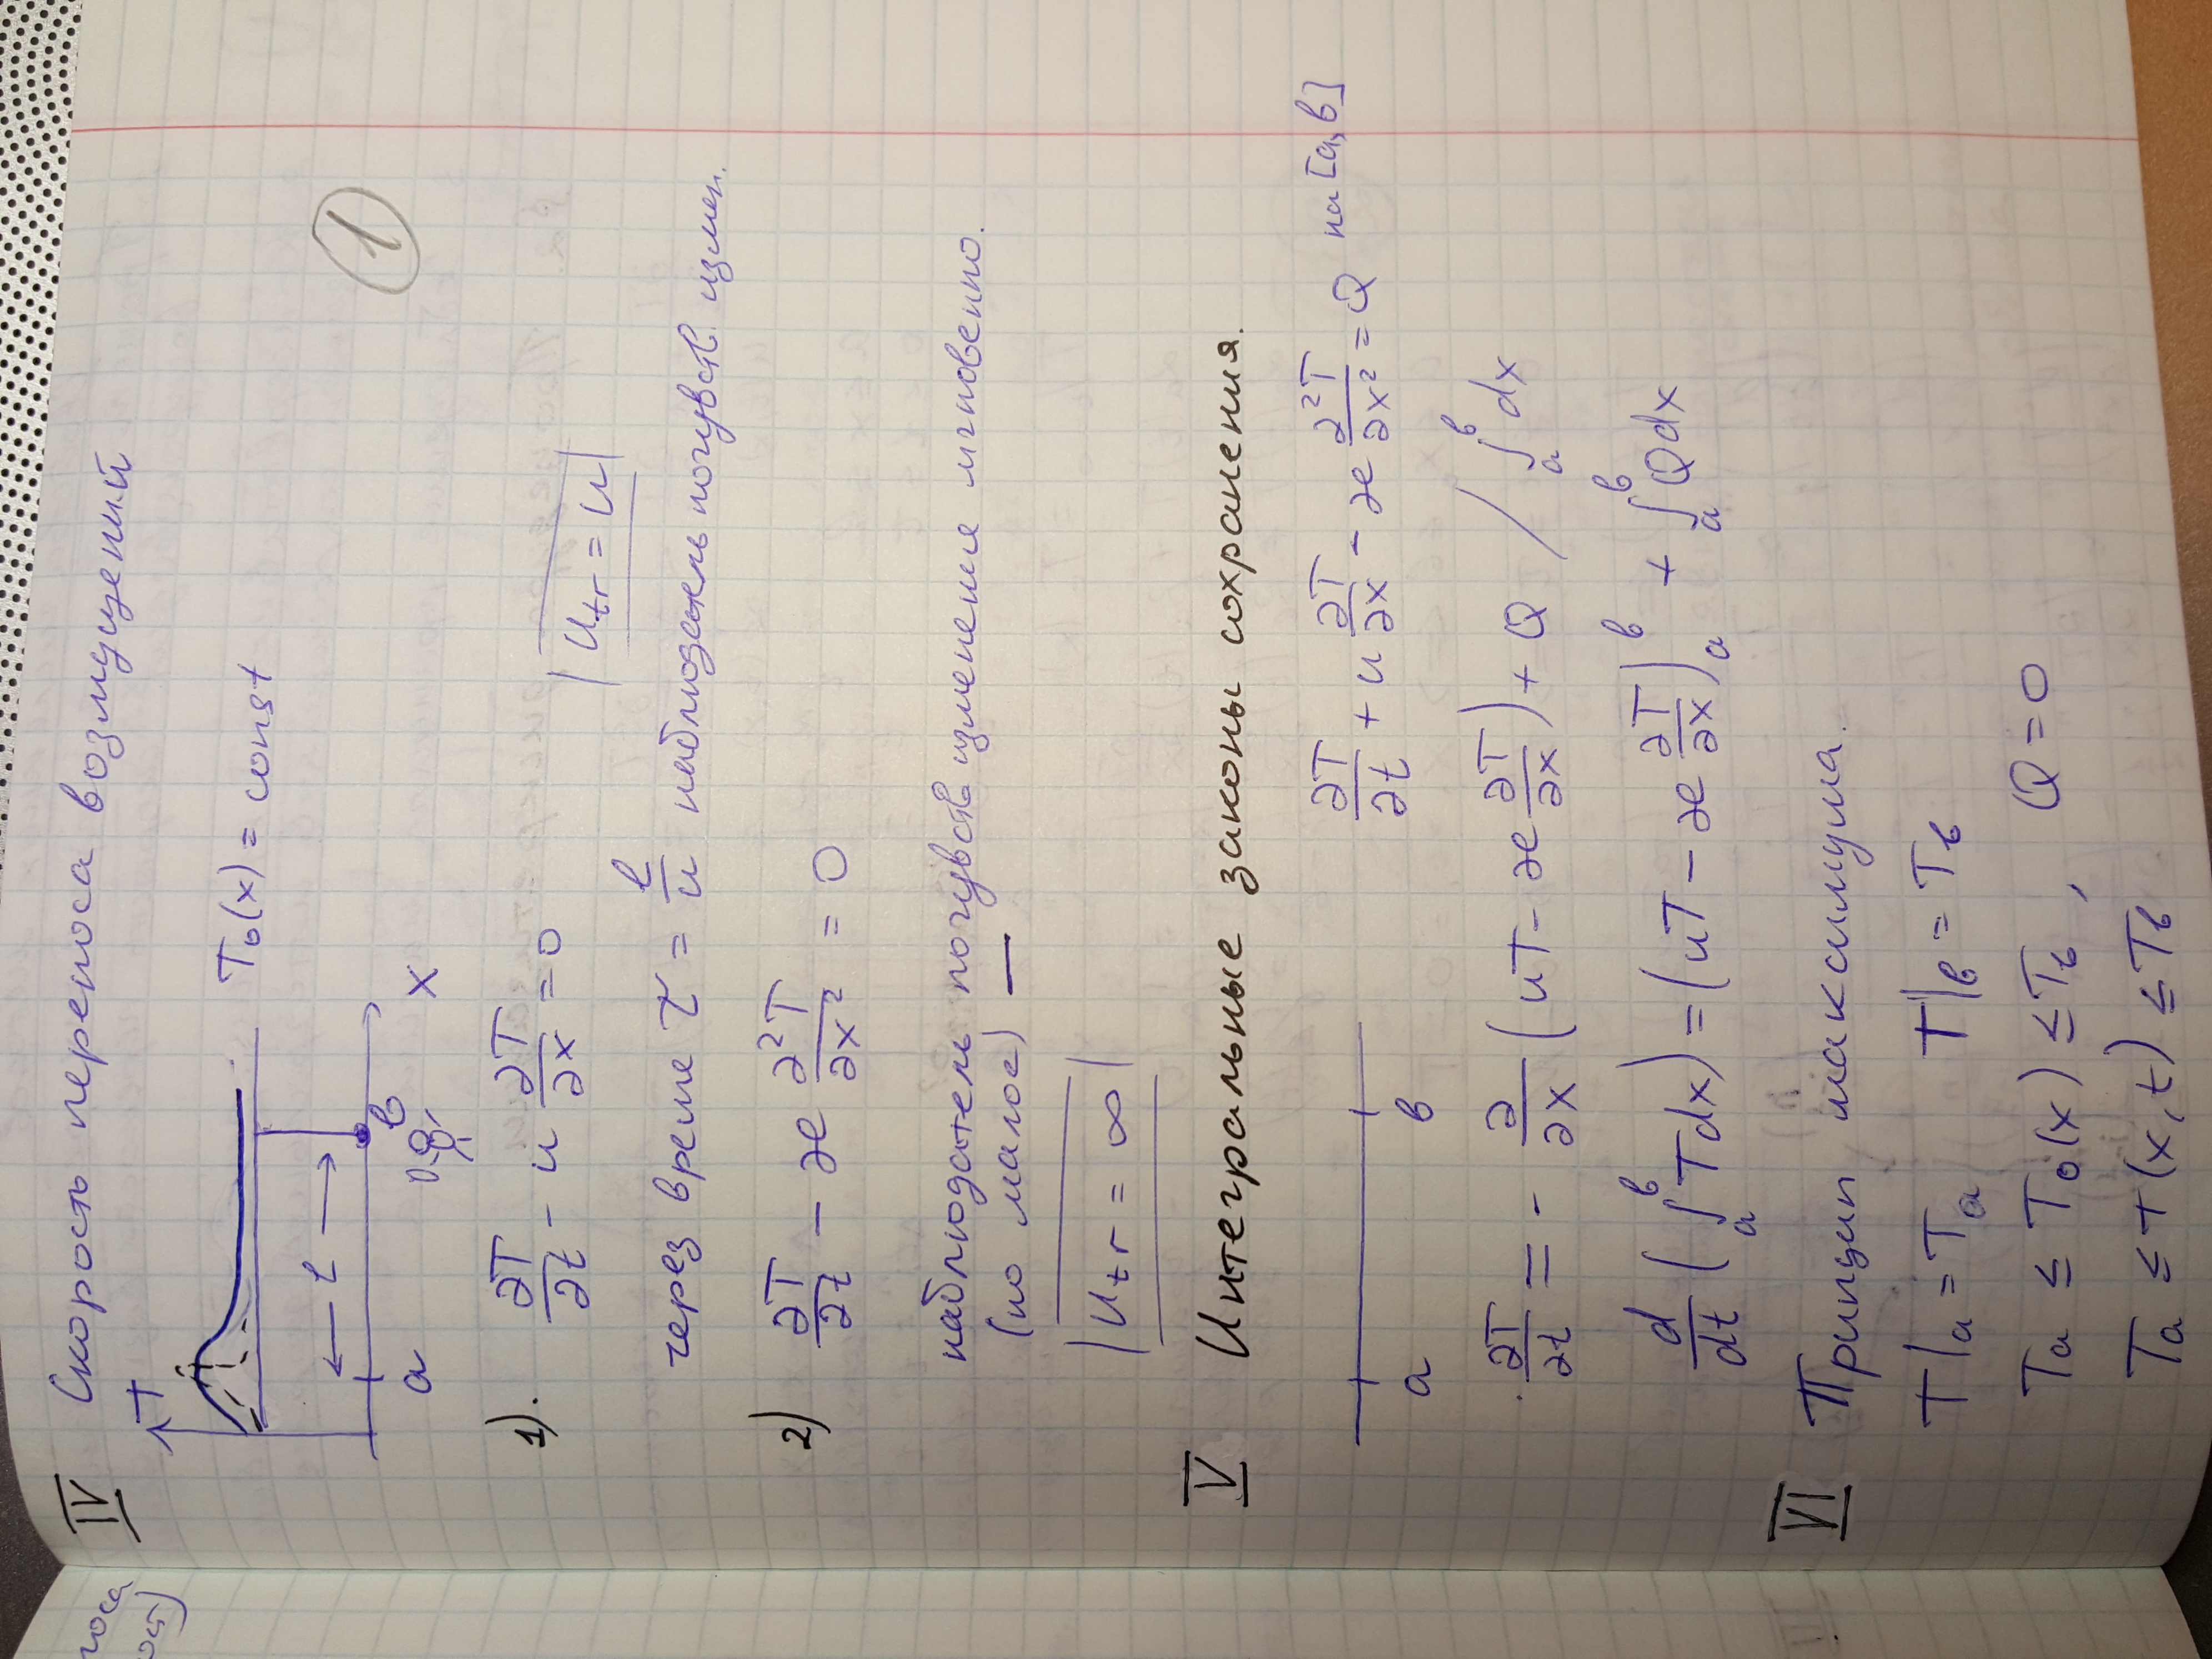 носа
ост)
IV Скорость переноса возмущений
T
T₀(x) = const
l
a
в
x
1
1). ∂T/∂t - u ∂T/∂x = 0
|u_tr = u|
через время τ = l/u наблюдатель почувств. измен.
2) ∂T/∂t - æ ∂²T/∂x² = 0
наблюдатель почувств изменение мгновенно.
(но малое) —
|u_tr = ∞|
V Интегральные законы сохранения.
a в
∂T/∂t + u ∂T/∂x - æ ∂²T/∂x² = Q на [a, в]
∂T/∂t = - ∂/∂x (uT - æ ∂T/∂x) + Q / ∫ₐᵇ dx
d/dt (∫ₐᵇ T dx) = (uT - æ ∂T/∂x)ₐᵇ + ∫ₐᵇ Q dx
VI Принцип максимума.
T|a = Ta T|в = Tв
Ta ≤ T₀(x) ≤ Tв , Q = 0
Ta ≤ T(x, t) ≤ Tв